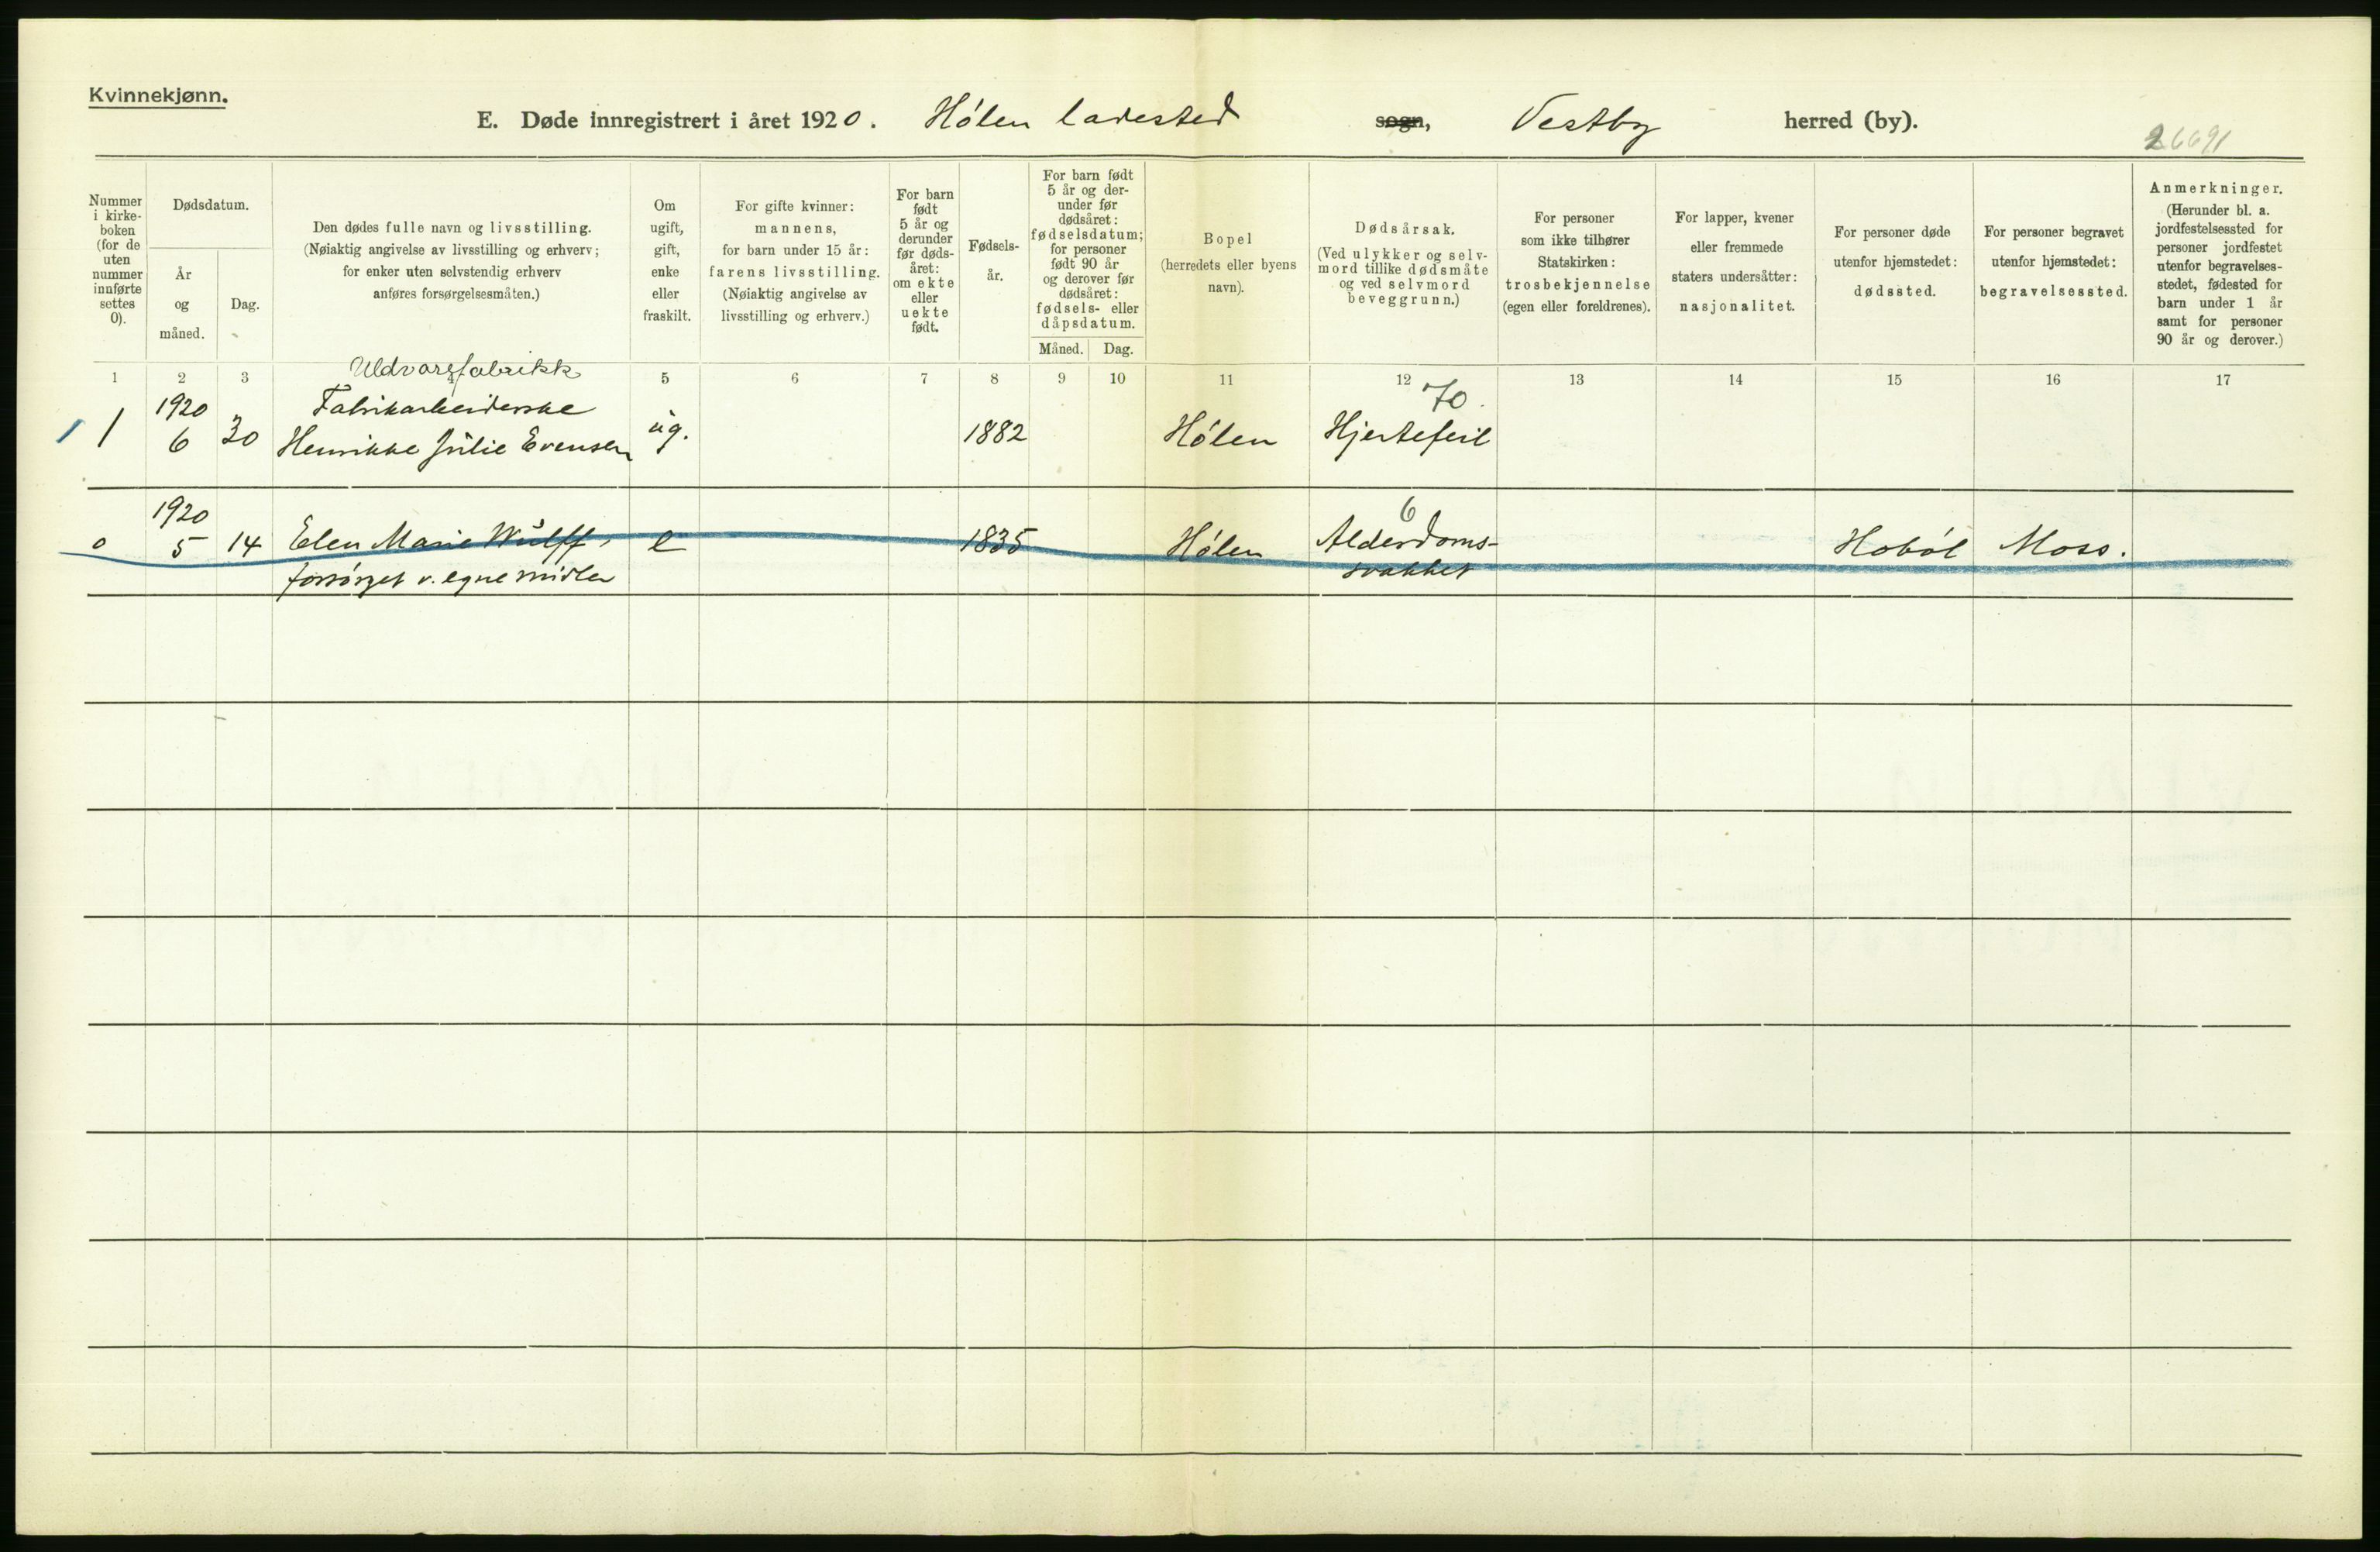 Kvinnekjønn.
E. Døde innregistrert i året 1920. Hólen ladested sogn, Vestby herred (by).
26691
Nummer i kirke- boken (for de uten nummer innførte settes 0).
Dødsdatum.
År og måned.
Dag.
Den dødes fulle navn og livsstilling.
(Nøiaktig angivelse av livsstilling og erhverv;
for enker uten selvstendig erhverv
anføres forsørgelsesmåten.)
Om ugift, gift, enke eller fraskilt.
For gifte kvinner:
mannens,
for barn under 15 år:
farens livsstilling.
(Nøiaktig angivelse av
livsstilling og erhverv.)
For barn født 5 år og derunder før døds- året: om ekte eller uekte født.
Fødsels- år.
For barn født 5 år og der- under før dødsåret: fødselsdatum; for personer født 90 år og derover før dødsåret: fødsels- eller dåpsdatum.
Måned. Dag.
Bopel
(herredets eller byens
navn).
Dødsårsak.
(Ved ulykker og selv-
mord tillike dødsmåte
og ved selvmord
beveggrunn.)
For personer
som ikke tilhører
Statskirken:
trosbekjennelse
(egen eller foreldrenes).
For lapper, kvener
eller fremmede
staters undersåtter:
nasjonalitet.
For personer døde
utenfor hjemstedet:
dødssted.
For personer begravet
utenfor hjemstedet:
begravelsessted.
Anmerkninger.
(Herunder bl. a.
jordfestelsessted for
personer jordfestet
utenfor begravelses-
stedet, fødested for
barn under 1 år
samt for personer
90 år og derover.)
1 2 3 4 5 6 7 8 9 10 11 12 13 14 15 16 17
Uldvarefabrikk
1920 Fabrikarbeiderske 70.
1 1 6 30 Henrikke Julie Evensen ug. 1882 Hólen Hjertefeil
1920 6
0 5 14 Elen Marie Wulff, e 1835 Hólen Alderdoms- Hoból Moss.
forsórget v. egne midler svakhet